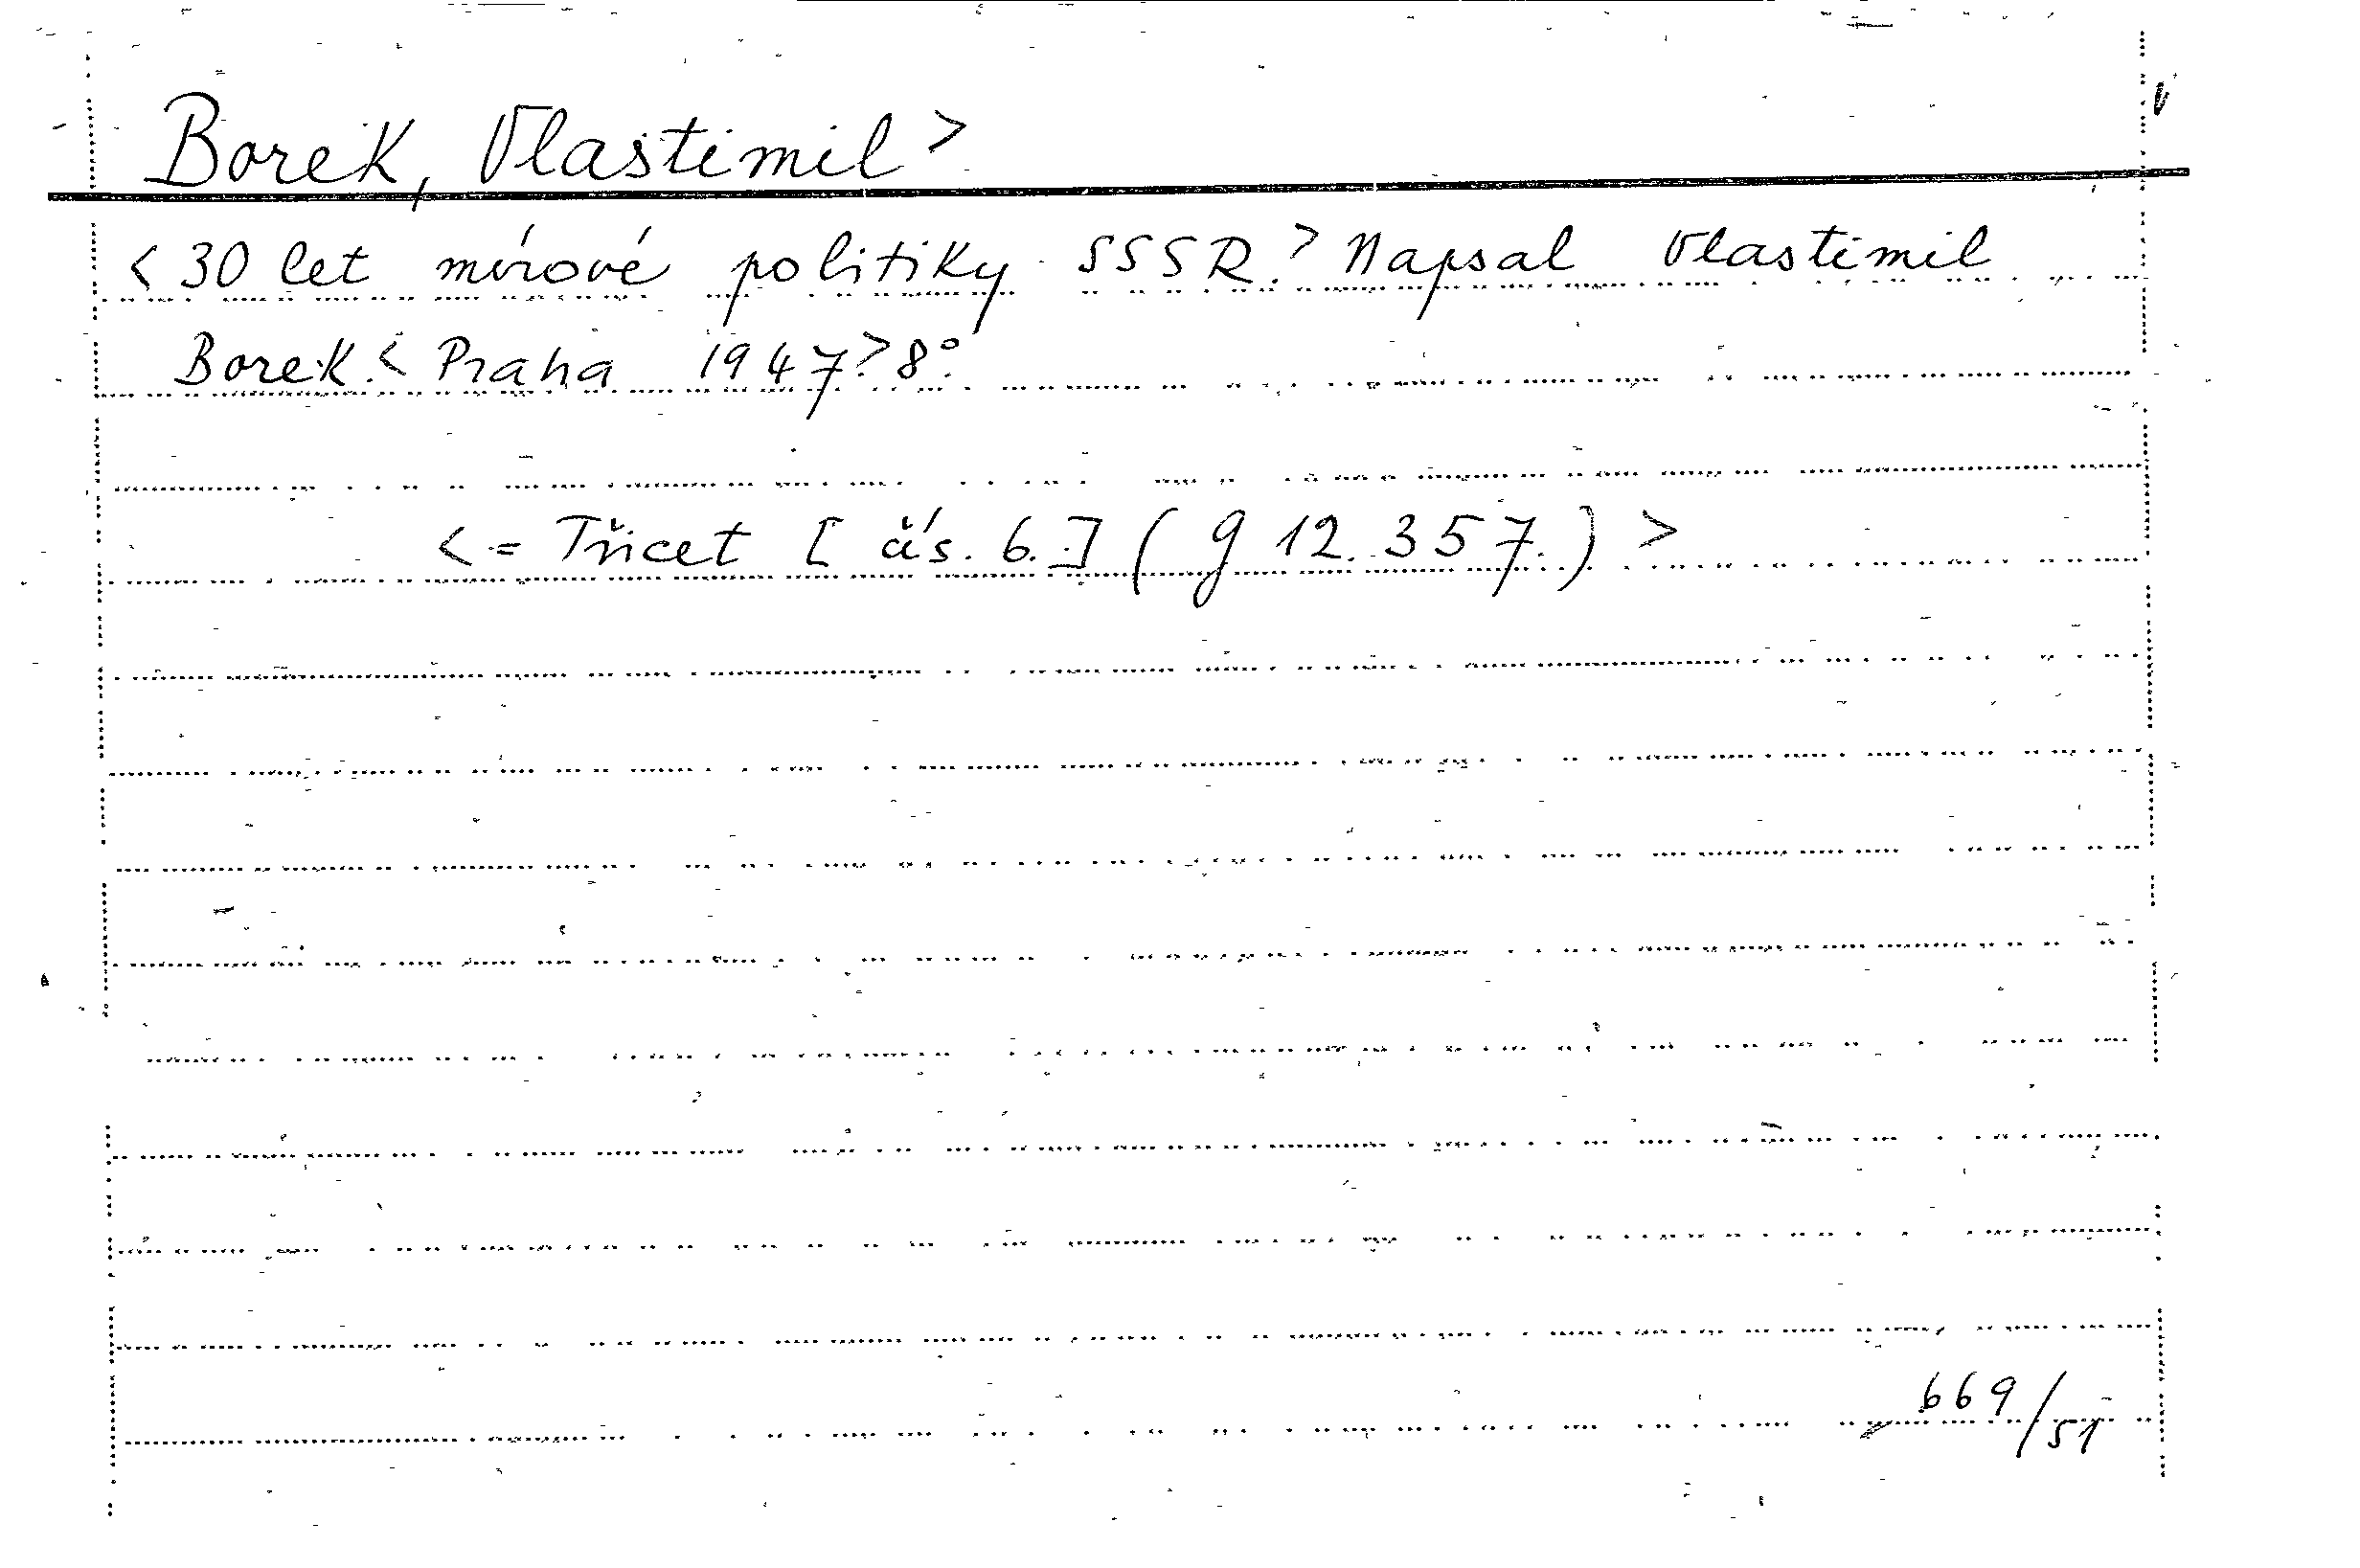 Borek, Vlastimil >
< 30 let mírové politiky SSSR.> Napsal Vlastimil
Borek.< Praha 1947> 8°.
< = Třicet [ čís. 6.] ( g 12.357.) >
669/51